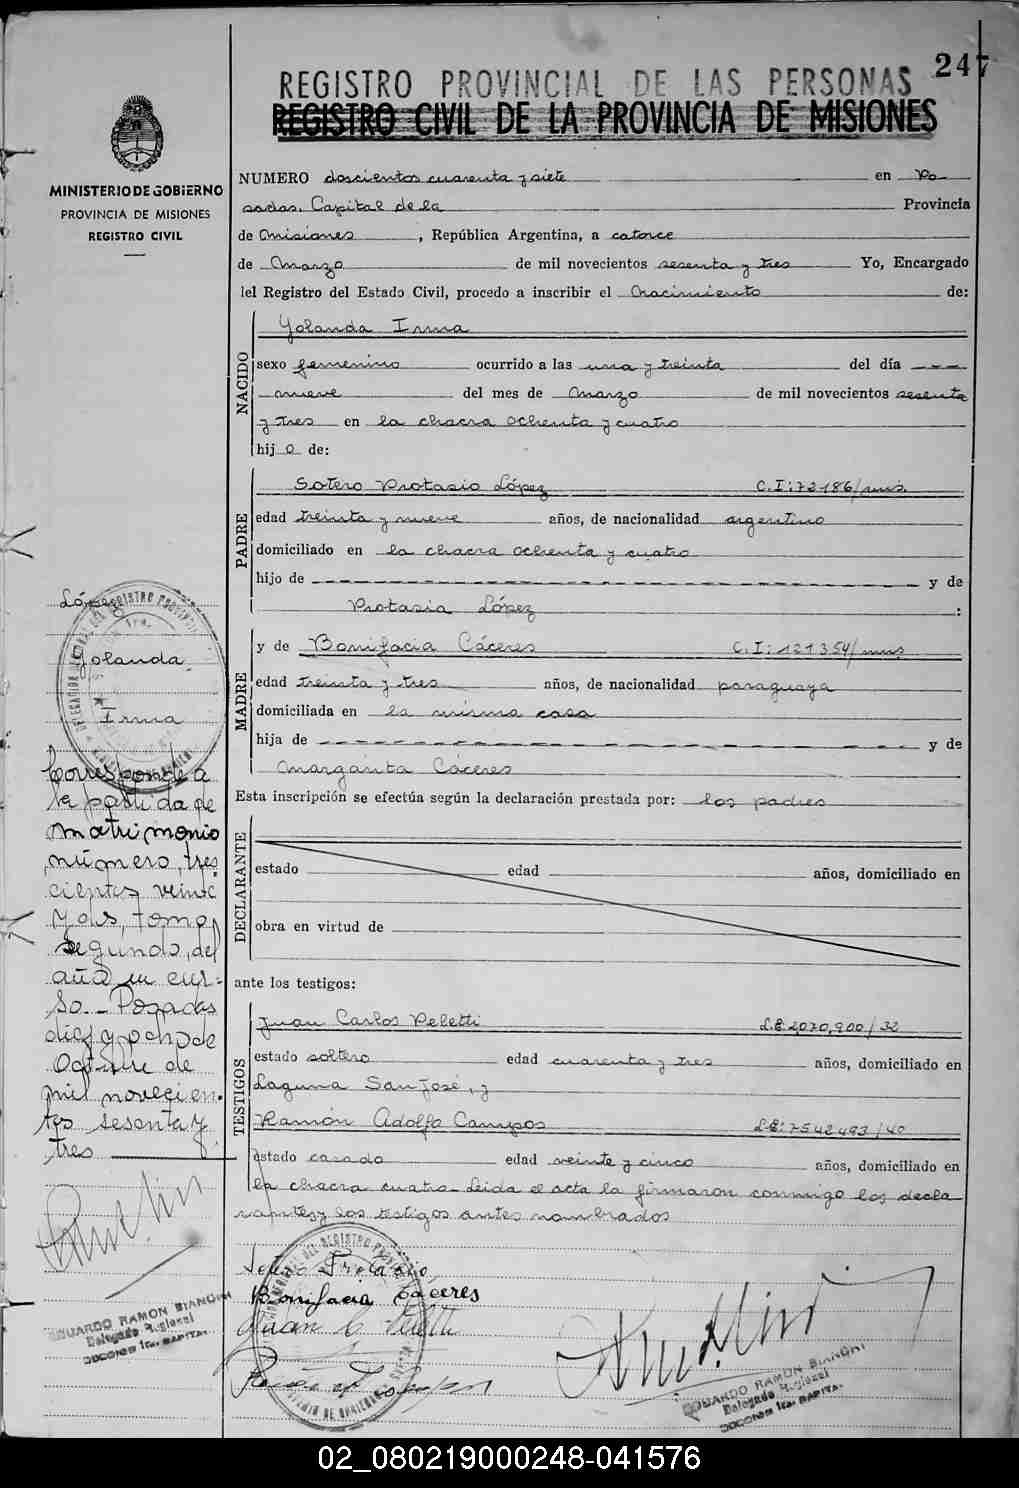 247
REGISTRO PROVINCIAL DE LAS PERSONAS
REGISTRO CIVIL DE LA PROVINCIA DE MISIONES
MINISTERIO DE GOBIERNO
PROVINCIA DE MISIONES
REGISTRO CIVIL
NUMERO doscientos cuarenta y siete en Po
sadas, Capital de la Provincia
de Misiones, República Argentina, a catorce
de Marzo de mil novecientos sesenta y tres Yo, Encargado
lel Registro del Estado Civil, procedo a inscribir el Nacimiento de:
NACIDO
Yolanda Irma
sexo femenino ocurrido a las una y treinta del día
nueve del mes de Marzo de mil novecientos sesenta
y tres en la chacra ochenta y cuatro
hij o de:
PADRE
Sotero Protasio López C.I:72186/mns.
edad treinta y nueve años, de nacionalidad argentino
domiciliado en la chacra ochenta y cuatro
hijo de y de
Protasia López :
MADRE
y de Bonifacia Cáceres C.I:121354/mns
edad treinta y tres años, de nacionalidad paraguaya
domiciliada en la misma casa
hija de y de
Margarita Cáceres
Esta inscripción se efectúa según la declaración prestada por: los padres
DECLARANTE
estado edad años, domiciliado en
obra en virtud de
ante los testigos:
TESTIGOS
Juan Carlos Peletti L.E:2,070,900/32
estado soltero edad cuarenta y tres años, domiciliado en
Laguna San José, y
Ramón Adolfo Campos L.E:7542493/40
estado casado edad veinte y cinco años, domiciliado en
la chacra cuatro-Leida el acta la firmaron conmigo los decla
rantes y los testigos antes nombrados
Bonifacia Caceres
EDUARDO RAMON BIANCHI
Delegado Regional
López
Yolanda
Irma
Corresponde a
la partida de
matrimonio
número, tres
cientos veinte
y dos, tomo
segundo, del
año en cur-
so.- Posadas
diez y ocho de
Octubre de
mil novecien-
tos sesenta y
tres
EDUARDO RAMON BIANCHI
Delegado Regional
02_080219000248-041576